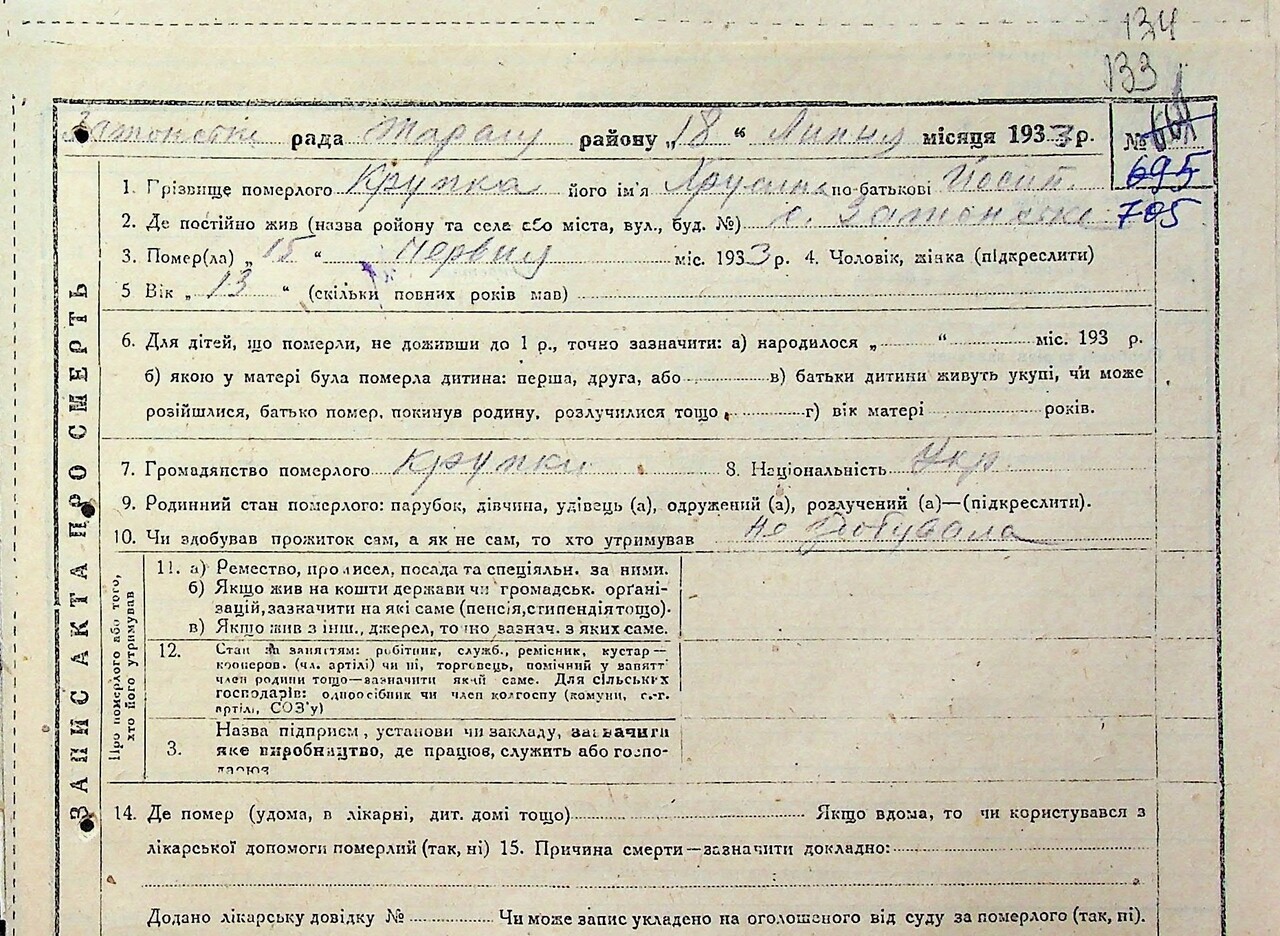 134
133
рада Таращ району „18“ Липня місяця 1933 р. №
695
1. Грізвище померлого Крупка його ім'я по-батькові Йосип.
705
2. Де постійно жив (назва ройону та села або міста, вул., буд. №) с.
3. Помер(ла) „15“ Червня міс. 1933 р. 4. Чоловік, жінка (підкреслити)
5 Вік „13“ (скільки повних років мав)
6. Для дітей, що померли, не доживши до 1 р., точно зазначити: а) народилося „ “ міс. 193 р.
б) якою у матері була померла дитина: перша, друга, або в) батьки дитини живуть укупі, чи може
розійшлися, батько помер, покинув родину, розлучилися тощо г) вік матері років.
7. Громадянство померлого Крупки 8. Національність Укр.
9. Родинний стан померлого: парубок, дівчина, удівець (а), одружений (а), розлучений (а)—(підкреслити).
10. Чи здобував прожиток сам, а як не сам, то хто утримував не здобувала
ЗАПИС АКТА ПРО СМЕРТЬ
Про померлого або того, хто його утримував
11. а) Ремество, промисел, посада та спеціяльн. за ними.
б) Якщо жив на кошти держави чи громадськ. орґані-
зацій, зазначити на які саме (пенсія, стипендія тощо).
в) Якщо жив з інш., джерел, точно зазнач. з яких саме.
12. Стан за заняттям: робітник, служб., ремісник, кустар—
кооперов. (чл. артілі) чи ні, торговець, помічний у занятт
член родини тощо—зазначити який саме. Для сільських
господарів: одноосібник чи член колгоспу (комуни, с.-г.
артілі, СОЗ'у)
Назва підприєм, установи чи закладу, зазначити
3. яке виробництво, де працює, служить або госпо-
дарює
14. Де помер (удома, в лікарні, дит. домі тощо) Якщо вдома, то чи користувався з
лікарської допомоги померлий (так, ні) 15. Причина смерти—зазначити докладно:
Додано лікарську довідку № Чи може запис укладено на оголошеного від суду за померлого (так, ні).